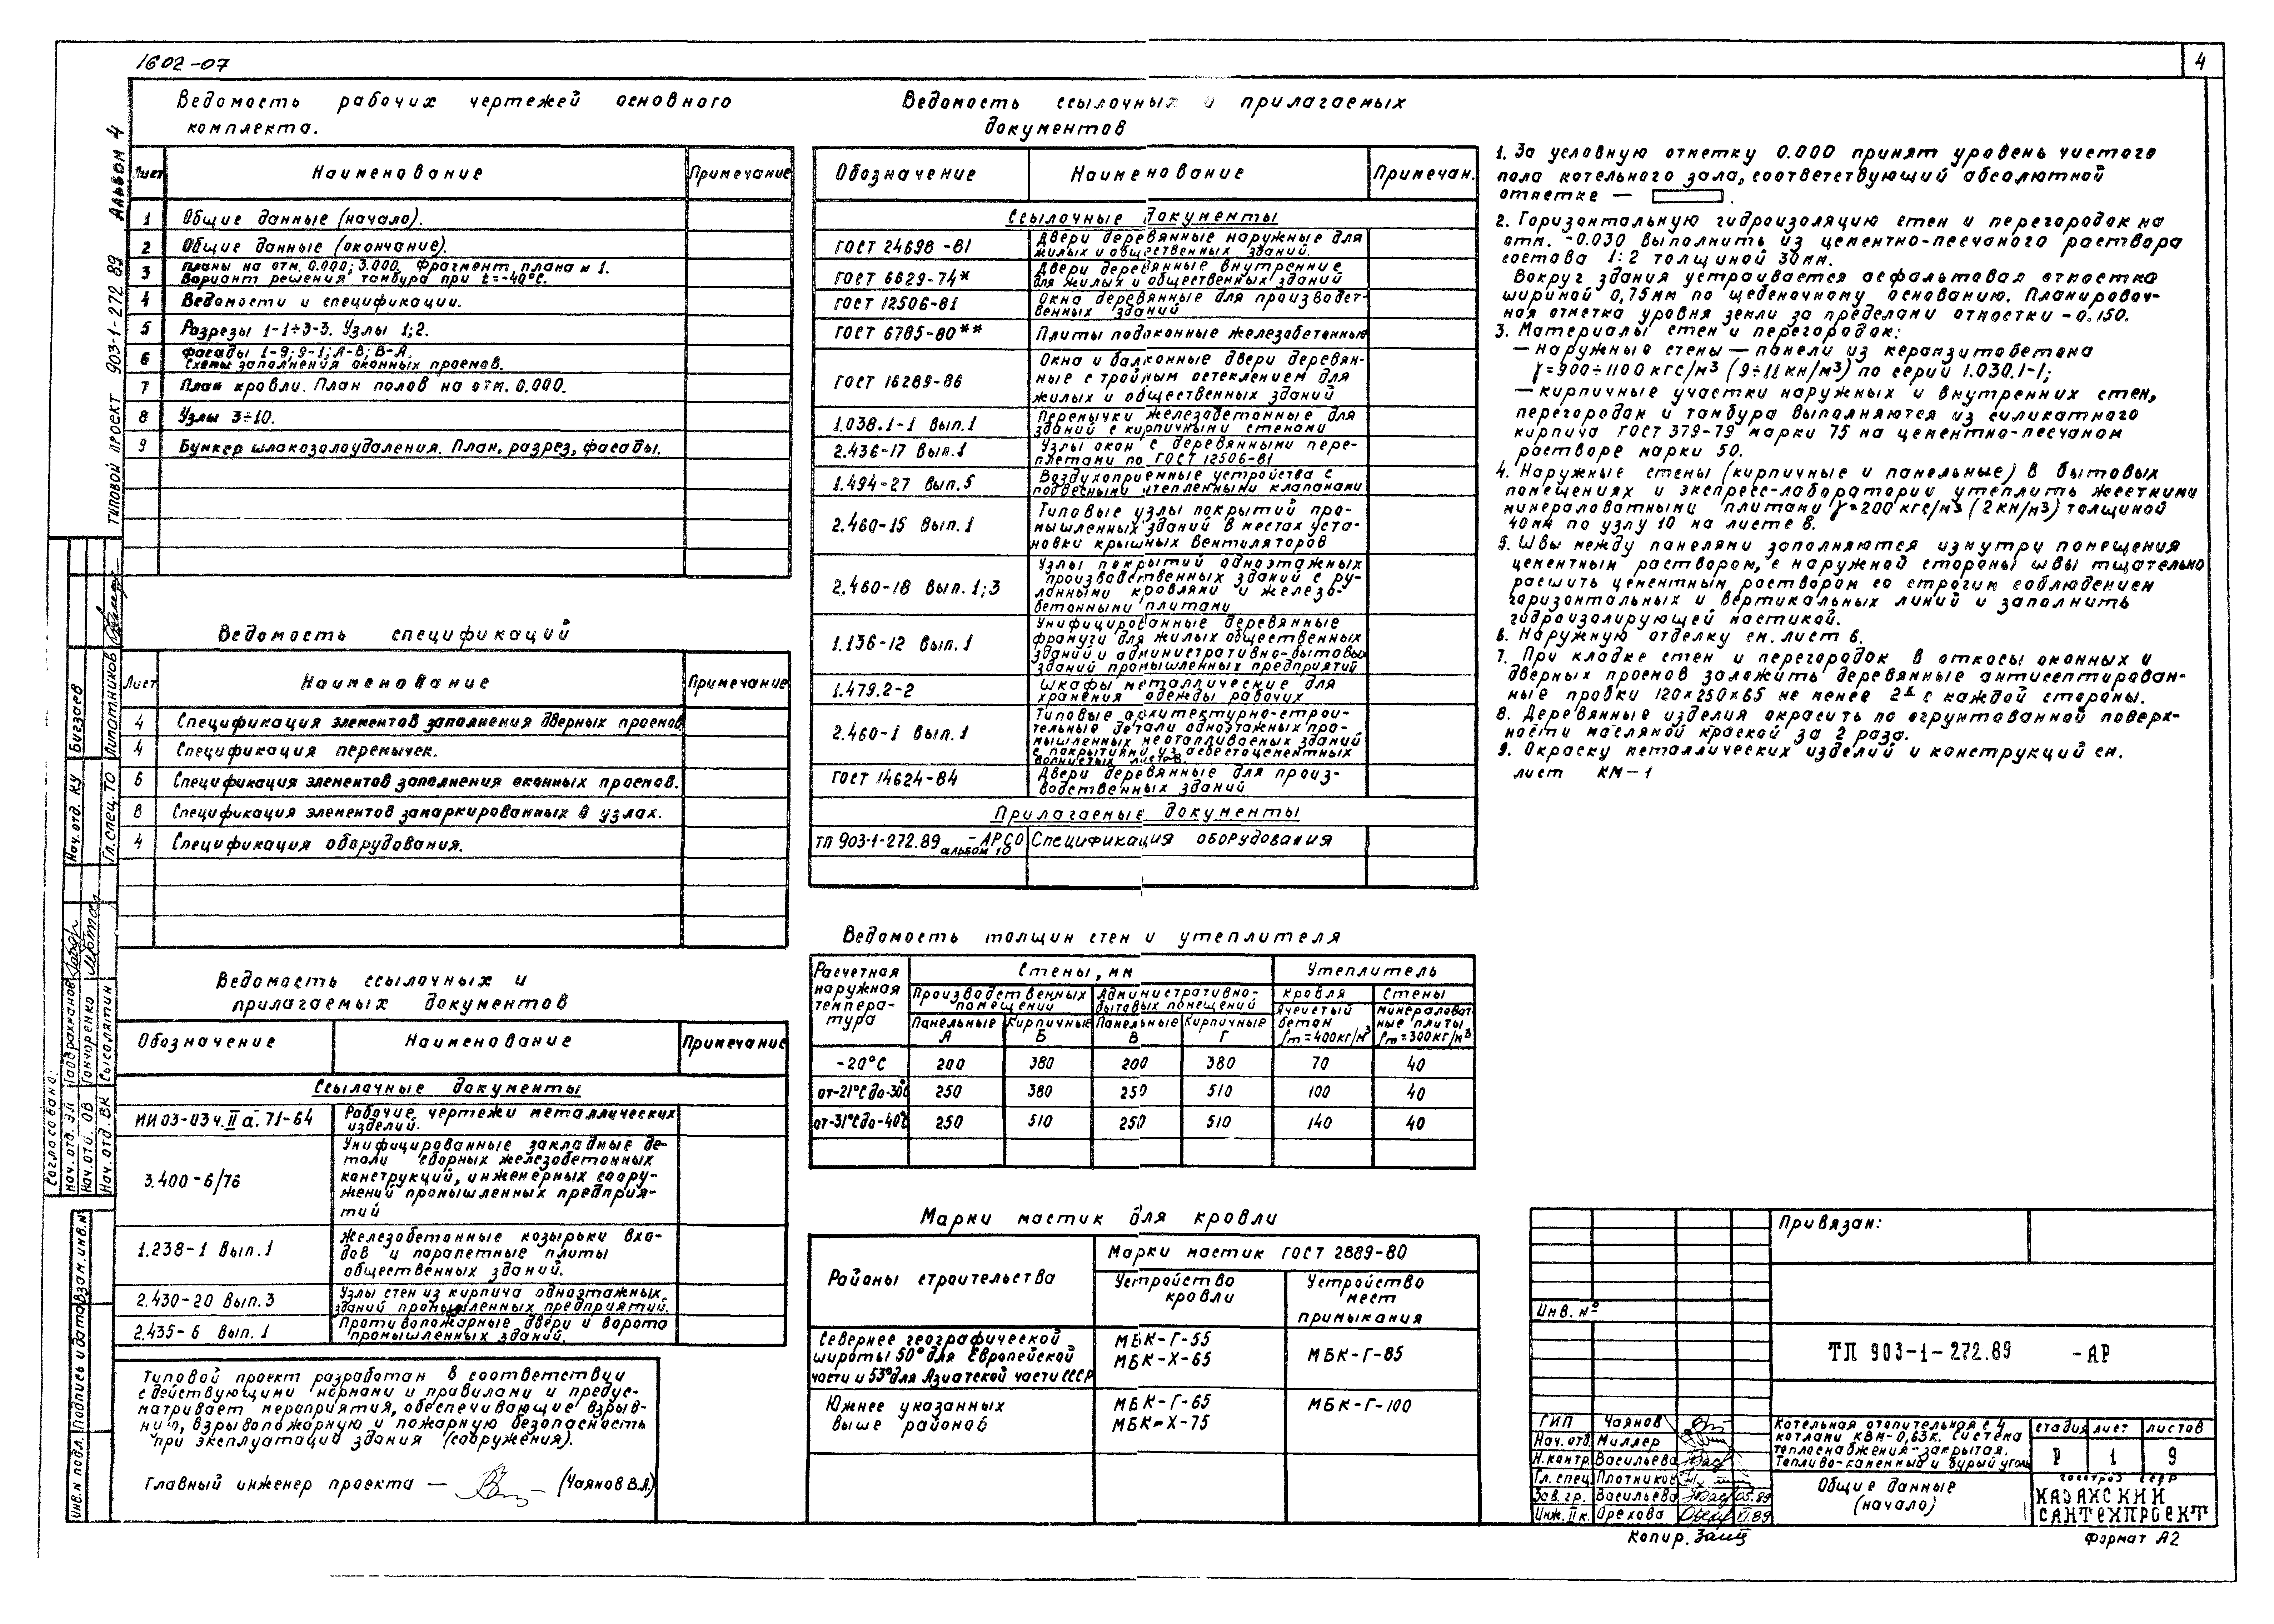 1602-07
4
Альбом 4
Типовой проект 903-1-272.89
Ведомость рабочих чертежей основного
комплекта.
Лист Наименование Примечание
1 Общие данные (начало).
2 Общие данные (окончание).
3 Планы на отм. 0.000; 3.000. Фрагмент плана №1.
Вариант решения тамбура при t=-40°С.
4 Ведомости и спецификации.
5 Разрезы 1-1÷3-3. Узлы 1;2.
6 Фасады 1-9; 9-1; А-В; В-А.
Схемы заполнения оконных проемов.
7 План кровли. План полов на отм. 0.000.
8 Узлы 3÷10.
9 Бункер шлакозолоудаления. План, разрез, фасады.
Ведомость спецификаций
Лист Наименование Примечание
4 Спецификация элементов заполнения дверных проемов.
4 Спецификация перемычек.
6 Спецификация элементов заполнения оконных проемов.
8 Спецификация элементов замаркированных в узлах.
4 Спецификация оборудования.
Ведомость ссылочных и
прилагаемых документов
Обозначение Наименование Примечание
Ссылочные документы
ИИ 03-03 ч.II а. 71-64 Рабочие чертежи металлических
изделий.
3.400-6/76 Унифицированные закладные де-
тали сборных железобетонных
конструкций, инженерных соору-
жений промышленных предприя-
тий
1.238-1 Вып.1 Железобетонные козырьки вхо-
дов и парапетные плиты
общественных зданий.
2.430-20 Вып.3 Узлы стен из кирпича одноэтажных
зданий промышленных предприятий.
2.435-6 Вып.1 Противопожарные двери и ворота
промышленных зданий.
Типовой проект разработан в соответствии
с действующими нормами и правилами и предус-
матривает мероприятия, обеспечивающие взрыв-
ную, взрывопожарную и пожарную безопасность
при эксплуатации здания (сооружения).
Главный инженер проекта — (Чаянов В.А)
Ведомость ссылочных и прилагаемых
документов
Обозначение Наименование Примечан.
Ссылочные документы
ГОСТ 24698-81 Двери деревянные наружные для
жилых и общественных зданий.
ГОСТ 6629-74* Двери деревянные внутренние
для жилых и общественных зданий
ГОСТ 12506-81 Окна деревянные для производст-
венных зданий
ГОСТ 6785-80** Плиты подоконные железобетонные
ГОСТ 16289-86 Окна и балконные двери деревян-
ные с тройным остеклением для
жилых и общественных зданий
1.038.1-1 Вып.1 Перемычки железобетонные для
зданий с кирпичными стенами
2.436-17 Вып.1 Узлы окон с деревянными пере-
плетами по ГОСТ 12506-81
1.494-27 Вып.5 Воздухоприемные устройства с
подвесными утепленными клапанами
2.460-15 Вып.1 Типовые узлы покрытий про-
мышленных зданий в местах уста-
новки крышных вентиляторов
2.460-18 Вып.1;3 Узлы покрытий одноэтажных
производственных зданий с ру-
лонными кровлями и железо-
бетонными плитами
1.136-12 Вып.1 Унифицированные деревянные
фрамуги для жилых общественных
зданий и административно-бытовых
зданий промышленных предприятий
1.479.2-2 Шкафы металлические для
хранения одежды рабочих
2.460-1 Вып.1 Типовые архитектурно-строи-
тельные детали одноэтажных про-
мышленных неотапливаемых зданий
с покрытиями из асбестоцементных
волнистых листов.
ГОСТ 14624-84 Двери деревянные для произ-
водственных зданий
Прилагаемые документы
ТП 903-1-272.89 -АРСО Спецификация оборудования
альбом 10
Ведомость толщин стен и утеплителя
Расчетная
наружная
темпера-
тура
Стены, мм Утеплитель
Производственных
помещений
Административно-
бытовых помещений
Кровля Стены
Панельные
А
Кирпичные
Б
Панельные
В
Кирпичные
Г
Ячеистый
бетон
ρm=400кг/м³
минераловат-
ные плиты
ρm=300кг/м³
-20°С 200 380 200 380 70 40
от-21°С до-30°С 250 380 250 510 100 40
от-31°С до-40°С 250 510 250 510 140 40
Марки мастик для кровли
Районы строительства
Марки мастик ГОСТ 2889-80
Устройство
кровли
Устройство
мест
примыкания
Севернее географической
широты 50° для Европейской
части и 53° для Азиатской части СССР
МБК-Г-55
МБК-Х-65
МБК-Г-85
Южнее указанных
выше районов
МБК-Г-65
МБК-Х-75
МБК-Г-100
1. За условную отметку 0.000 принят уровень чистого
пола котельного зала, соответствующий абсолютной
отметке — .
2. Горизонтальную гидроизоляцию стен и перегородок на
отм. -0.030 выполнить из цементно-песчаного раствора
состава 1:2 толщиной 30мм.
Вокруг здания устраивается асфальтовая отмостка
шириной 0,75мм по щебеночному основанию. Планировоч-
ная отметка уровня земли за пределами отмостки -0.150.
3. Материалы стен и перегородок:
— наружные стены — панели из керамзитобетона
γ=900÷1100 кгс/м³ (9÷11 кн/м³) по серии 1.030.1-1;
— кирпичные участки наружных и внутренних стен,
перегородок и тамбура выполняются из силикатного
кирпича ГОСТ 379-79 марки 75 на цементно-песчаном
растворе марки 50.
4. Наружные стены (кирпичные и панельные) в бытовых
помещениях и экспресс-лаборатории утеплить жесткими
минераловатными плитами γ=200 кгс/м³ (2кн/м³) толщиной
40мм по узлу 10 на листе 8.
5. Швы между панелями заполняются изнутри помещения
цементным раствором, с наружной стороны швы тщательно
расшить цементным раствором со строгим соблюдением
горизонтальных и вертикальных линий и заполнить
гидроизолирующей мастикой.
6. Наружную отделку см. лист 6.
7. При кладке стен и перегородок в откосы оконных и
дверных проемов заложить деревянные антисептирован-
ные пробки 120×250×65 не менее 2х с каждой стороны.
8. Деревянные изделия окрасить по огрунтованной поверх-
ности масляной краской за 2 раза.
9. Окраску металлических изделий и конструкций см.
лист КМ-1
Привязан:
Инв. №
ТП 903-1-272.89 -АР
ГИП Чаянов
Нач.отд. Миллер
Н.контр. Васильева
Гл.спец. Плотников
Зав.гр. Васильева 05.89
Инж.IIк. Орехова VI.89
Котельная отопительная с 4
котлами КВм-0,63К. Система
теплоснабжения-закрытая.
Топливо-каменный и бурый уголь
стадия лист листов
Р 1 9
Общие данные
(начало)
Госстрой СССР
КАЗАХСКИЙ
САНТЕХПРОЕКТ
Копир.
Формат А2
Согласовано:
Нач.отд. ЭЛ
Нач.отд. ОВ Гончаренко
Нач.отд. ВК Сысолятин
Нач.отд. КУ Бигзаев
Гл.спец. ТО Плотников
Взам.инв.№
Подпись и дата
Инв.№ подл.